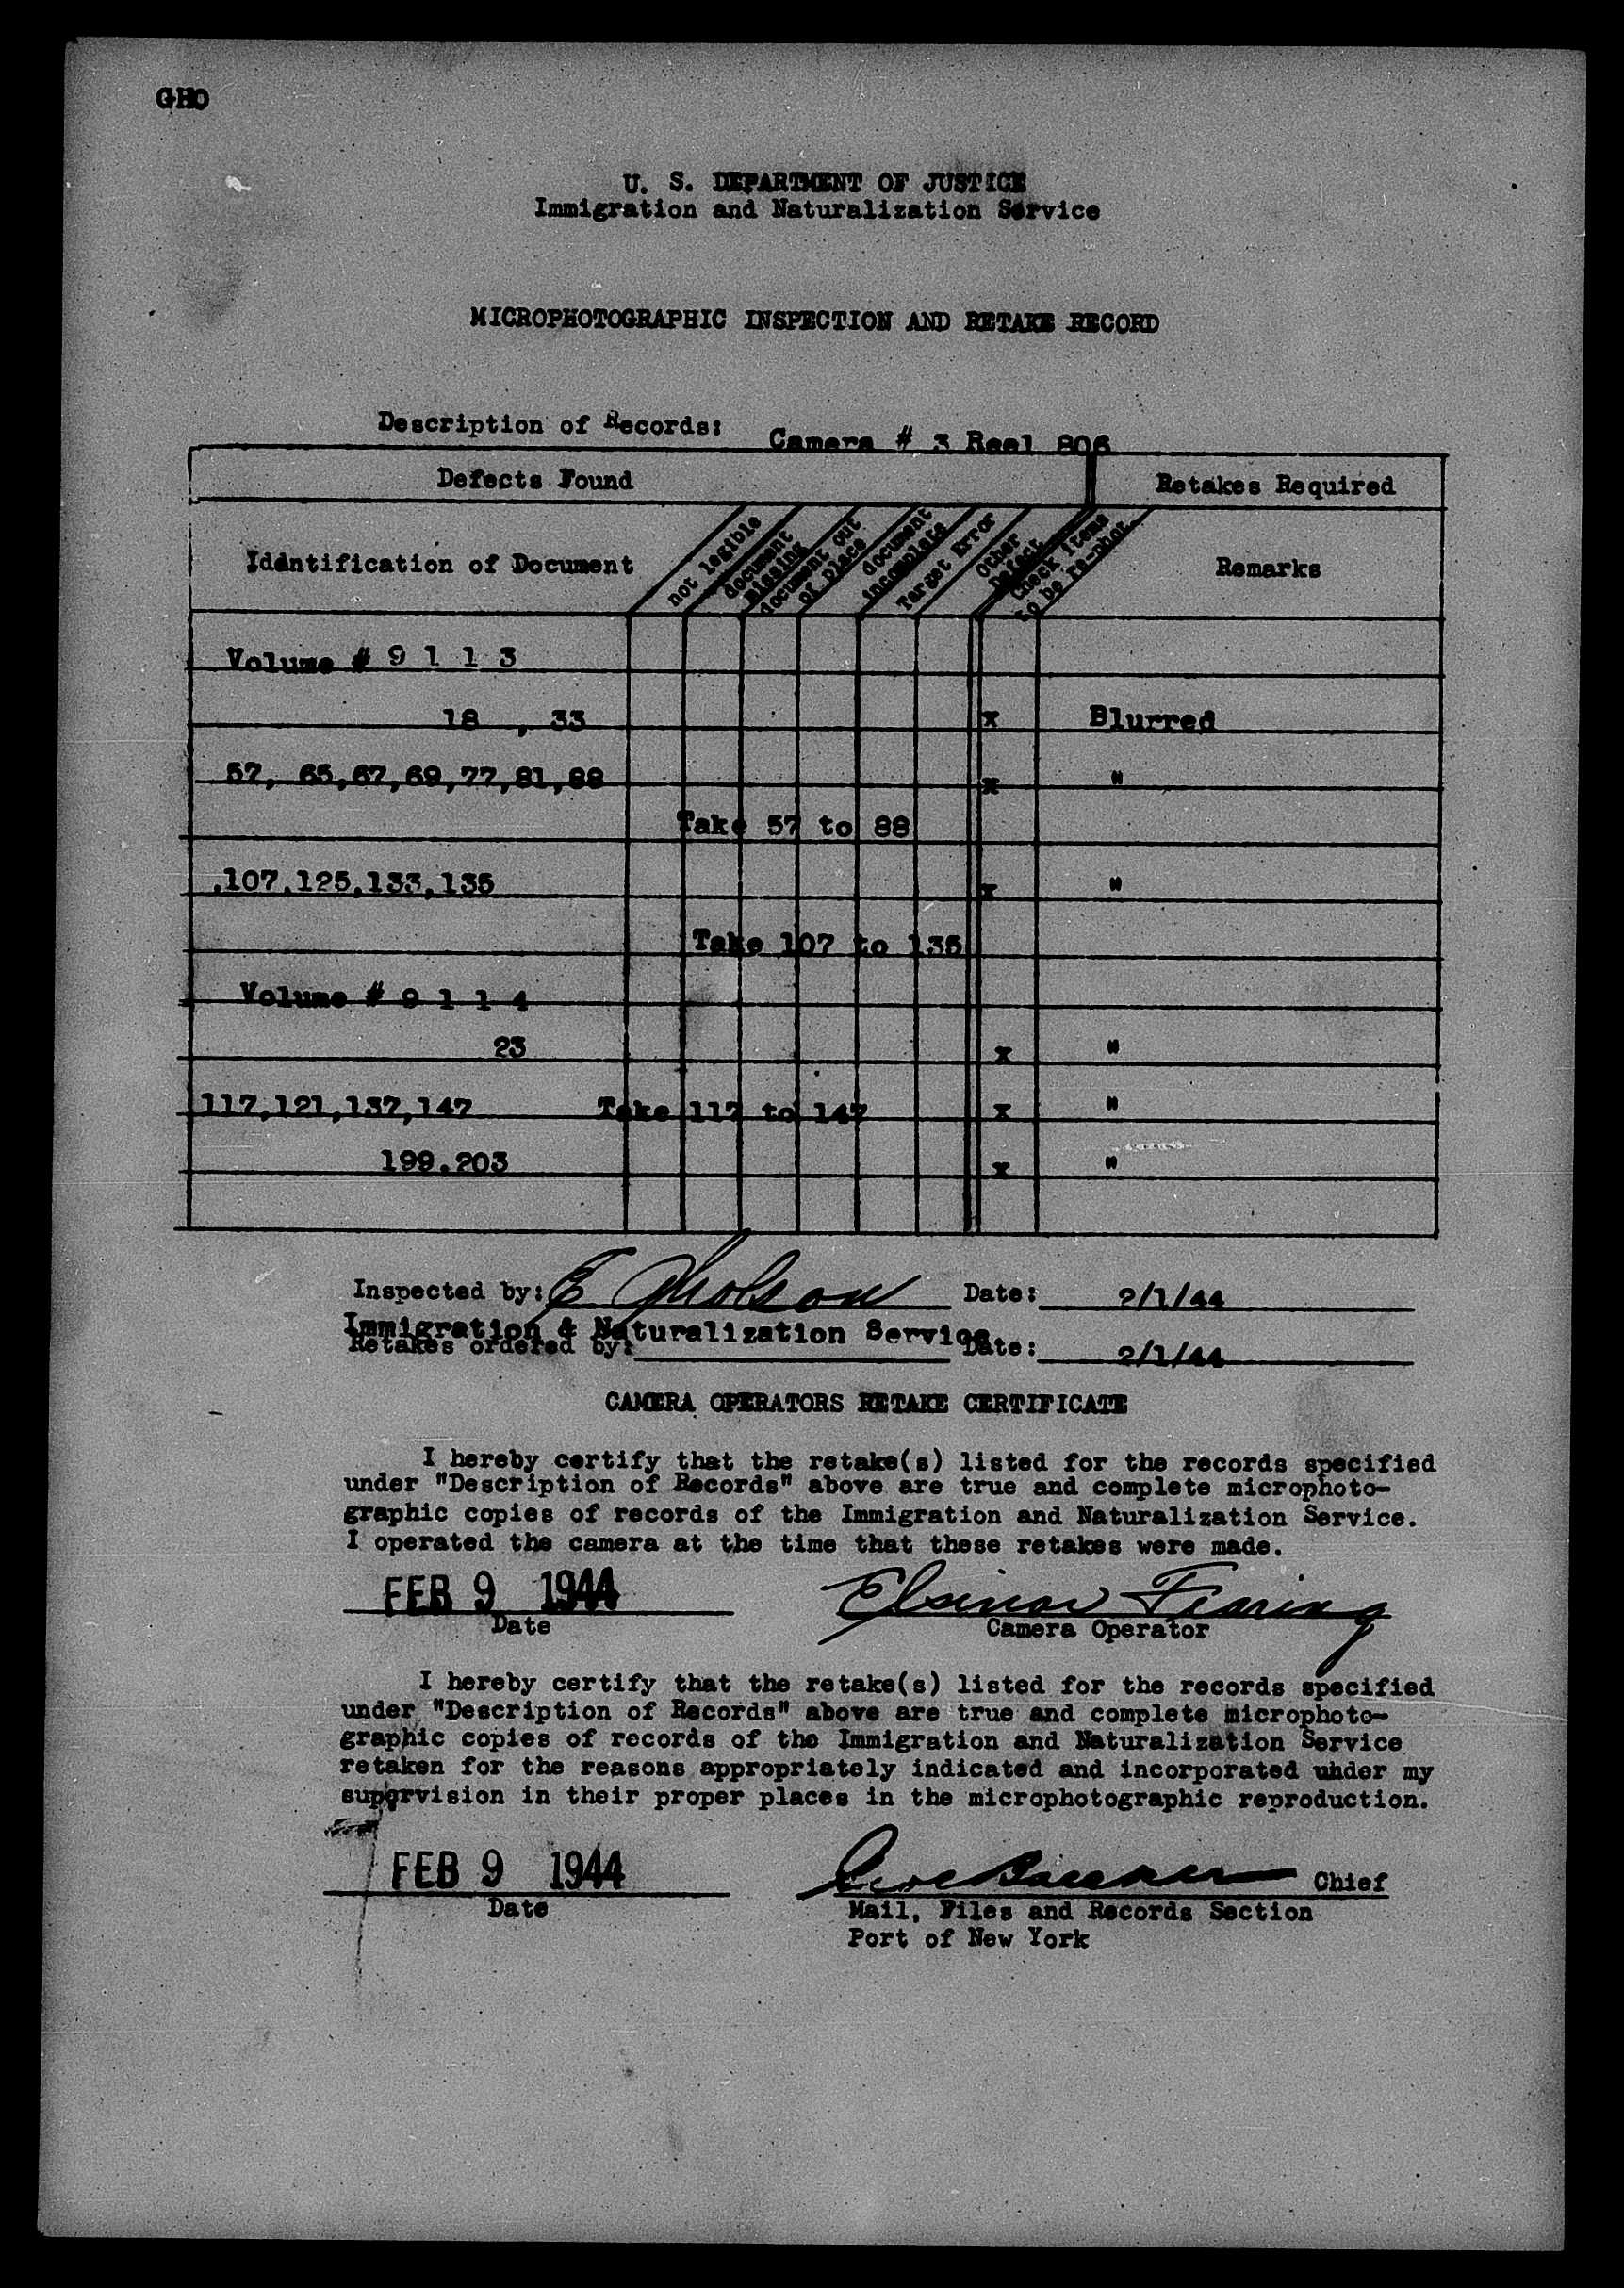 GHO
U. S. DEPARTMENT OF JUSTICE
Immigration and Naturalization Service
MICROPHOTOGRAPHIC INSPECTION AND RETAKE RECORD
Description of Records: Camera # 3 Reel 806
Defects Found Retakes Required
Identification of Document not legible document missing document out of place document incomplete Target Error Other Defect Check items to be re-phot. Remarks
Volume # 9 1 1 3
18 , 33 x Blurred
57, 65,67,69,77,81,88 x "
Take 57 to 88
,107,125,133,135 x "
Take 107 to 135
Volume # 9 1 1 4
23 x "
117,121,137,147 Take 117 to 147 x "
199,203 x "
Inspected by: E Date: 2/1/44
Immigration & Naturalization Service
Retakes ordered by: Date: 2/1/44
CAMERA OPERATORS RETAKE CERTIFICATE
I hereby certify that the retake(s) listed for the records specified
under "Description of Records" above are true and complete microphoto-
graphic copies of records of the Immigration and Naturalization Service.
I operated the camera at the time that these retakes were made.
FEB 9 1944 Elsinor Fearing
Date Camera Operator
I hereby certify that the retake(s) listed for the records specified
under "Description of Records" above are true and complete microphoto-
graphic copies of records of the Immigration and Naturalization Service
retaken for the reasons appropriately indicated and incorporated under my
supervision in their proper places in the microphotographic reproduction.
FEB 9 1944 Chief
Date Mail, Files and Records Section
Port of New York